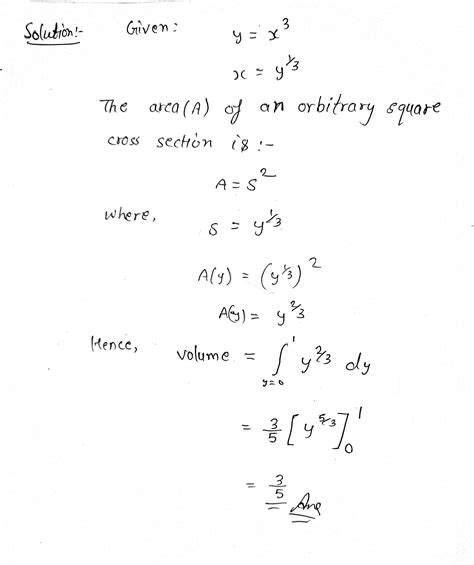 Solution:- Given: y = x^3
x = y^{1/3}
The area(A) of an orbitrary square
cross section is :-
A = S^2
where,
s = y^{1/3}
A(y) = (y^{1/3})^2
A(y) = y^{2/3}
Hence, volume = ∫_{y=0}^{1} y^{2/3} dy
= 3/5 [y^{5/3}]_0^1
= 3/5 Ans